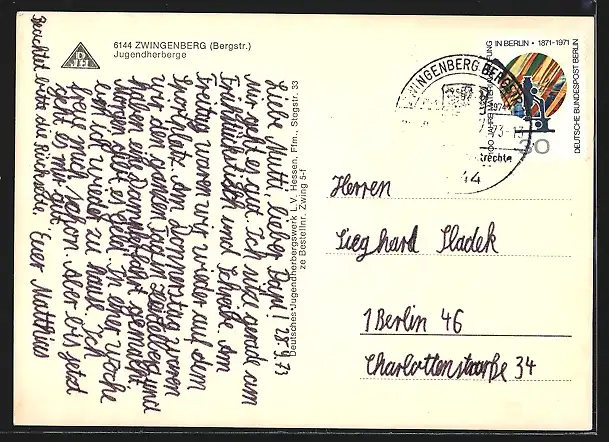 6144 ZWINGENBERG (Bergstr.)
Jugendherberge
DJH
Liebe Mutti, lieber Papi! 28.4.73
Mir geht es gut. Ich sitze gerade am
Frühstückstisch und schreibe. Am
Freitag waren wir wieder auf dem
Sportplatz. Am Donnerstag waren
wir den ganzen Tag in Heidelberg und
haben eine Dampferfahrt gemacht.
Morgen gibt es Geld. In einer Woche
bin ich wieder zu Hause. Ich
freu mich schon. Aber bis jetzt
geht es mir gut.
Euer Matthias
Beachtet bitte die Rückseite.
Deutsches Jugendherbergswerk L.V. Hessen, Ffm., Stegstr. 33
Bestellnr. Zwing 5-f
ZWINGENBERG BERGSTR
IN BERLIN • 1871-1971
DEUTSCHE BUNDESPOST BERLIN
30
Herren
Sieghard Sladek
1 Berlin 46
Charlottenstraße 34